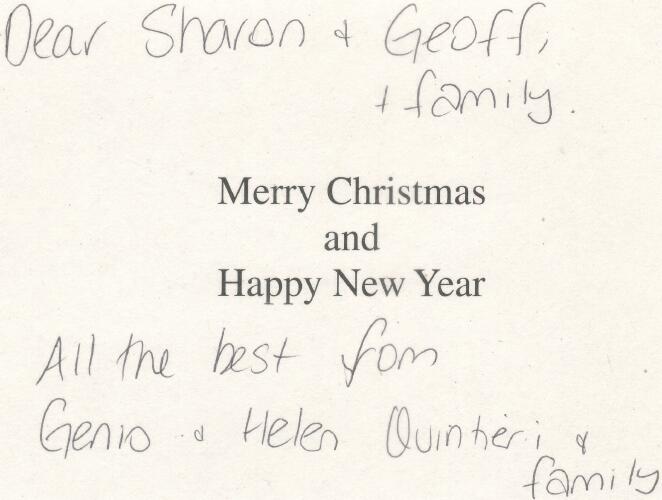 Dear Sharon + Geoff,
+ family.
Merry Christmas
and
Happy New Year
All the best fom
Genio & Helen Quintieri &
family